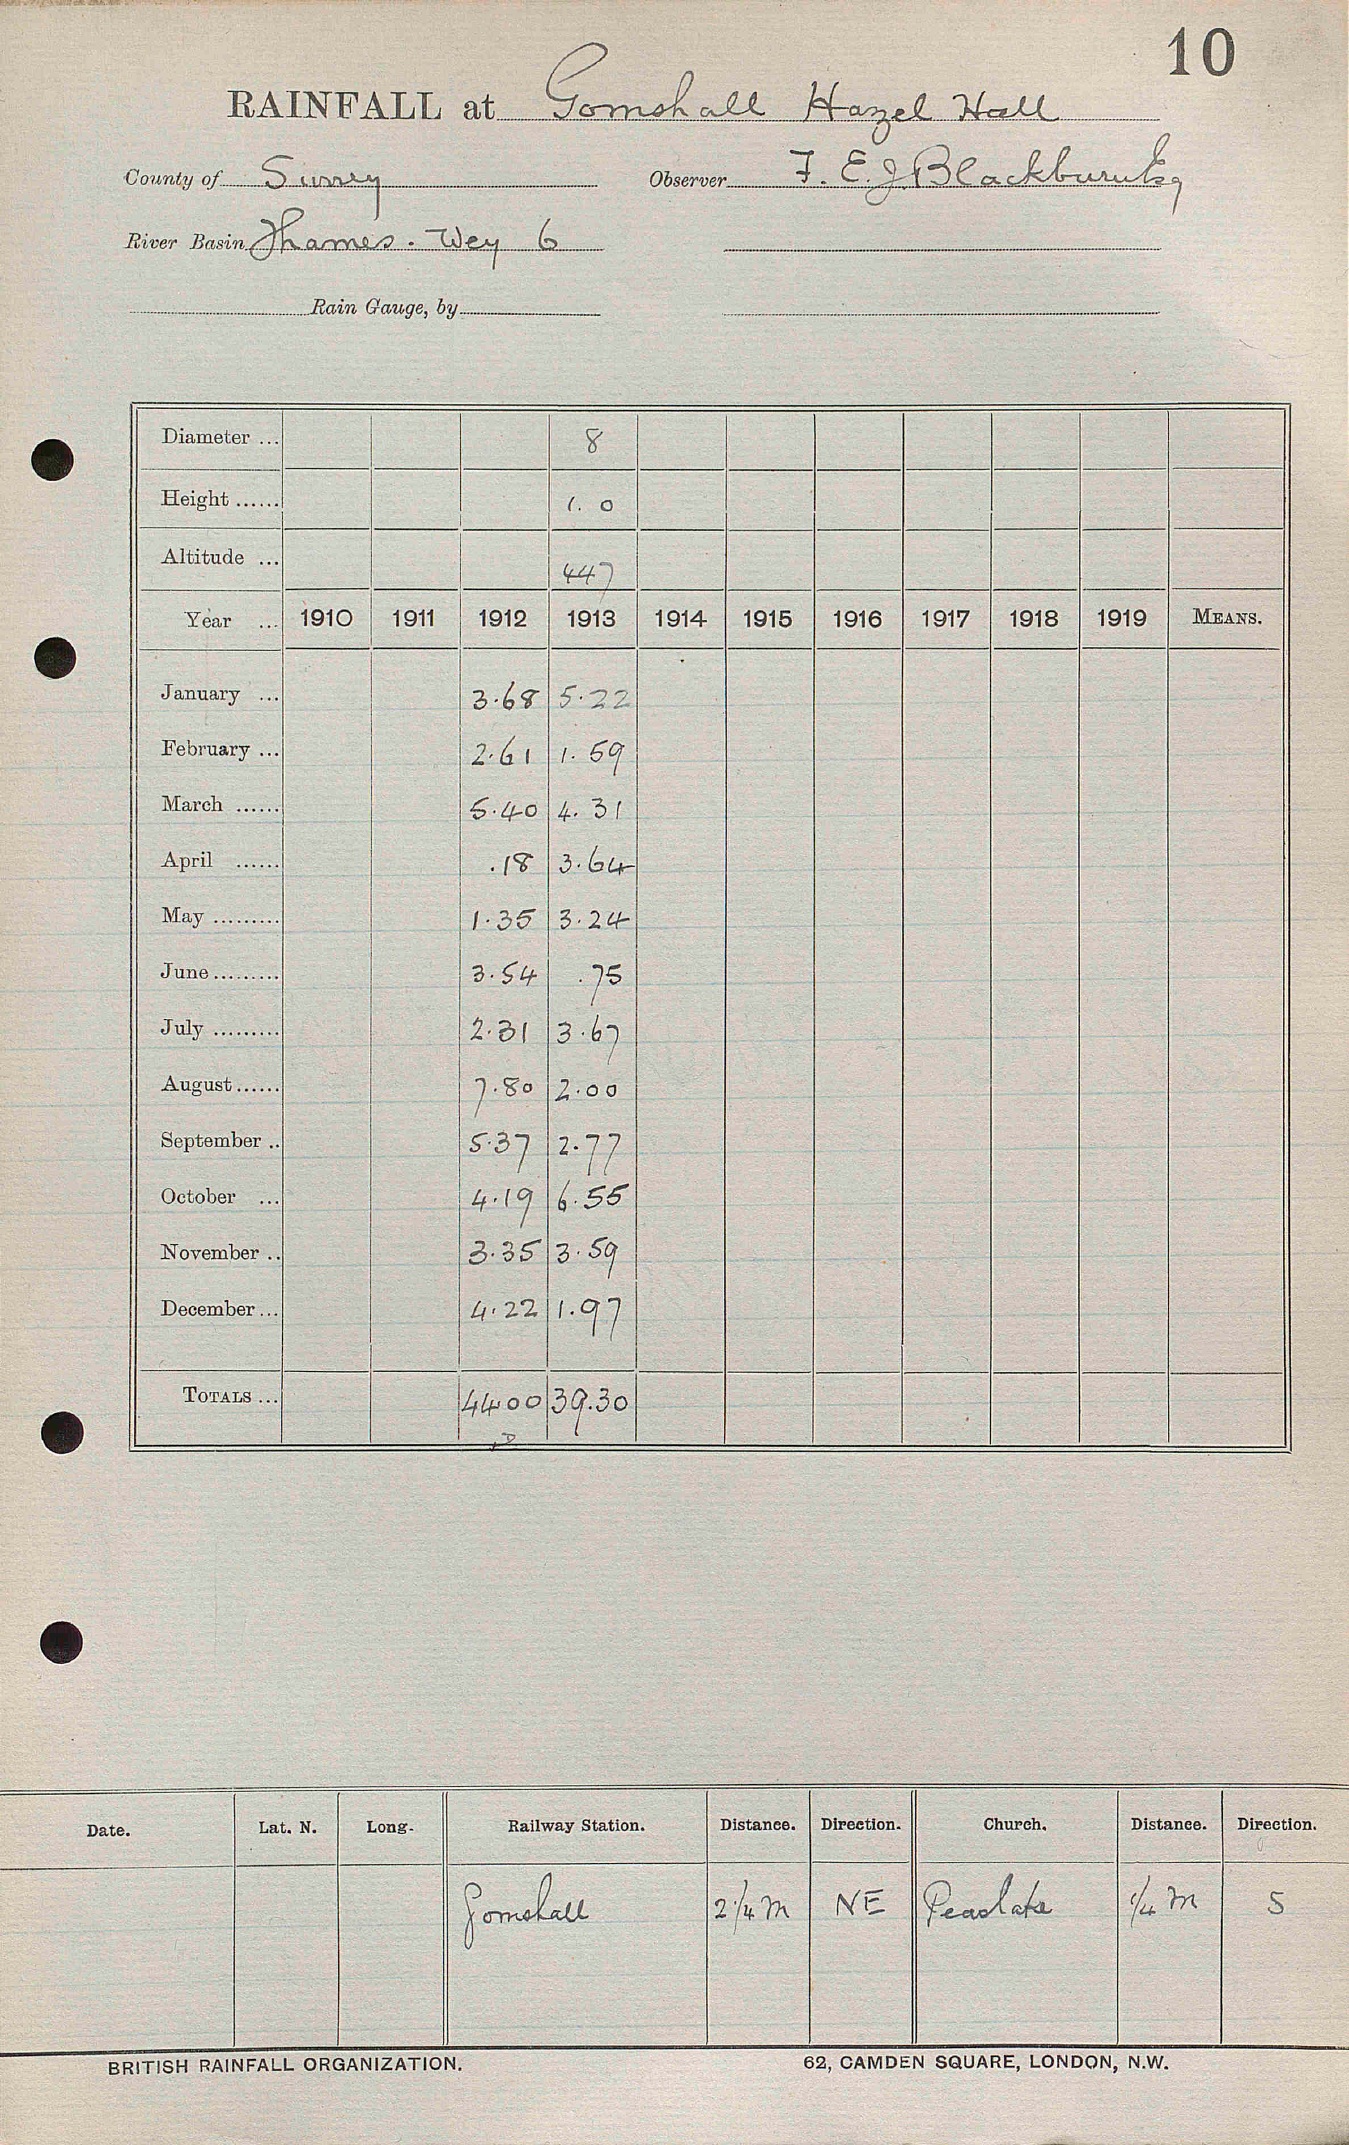 10
RAINFALL at Gomshall Hazel Hall
County of Surrey Observer F. E. J. Blackburn Esq
River Basin Thames. Wey 6
Rain Gauge, by
Diameter ... 8
Height ...... 1. 0
Altitude ... 447
Year ... 1910 1911 1912 1913 1914 1915 1916 1917 1918 1919 MEANS.
January ... 3.68 5.22
February ... 2.61 1.59
March ...... 5.40 4.31
April ...... .18 3.64
May ......... 1.35 3.24
June ......... 3.54 .75
July ......... 2.31 3.67
August ...... 7.80 2.00
September .. 5.37 2.77
October ... 4.19 6.55
November .. 3.35 3.59
December ... 4.22 1.97
TOTALS ... 4400 39.30
Date. Lat. N. Long. Railway Station. Distance. Direction. Church. Distance. Direction.
Gomshall 2 1/4 m NE Peaslake 1/4 m S
BRITISH RAINFALL ORGANIZATION. 62, CAMDEN SQUARE, LONDON, N.W.